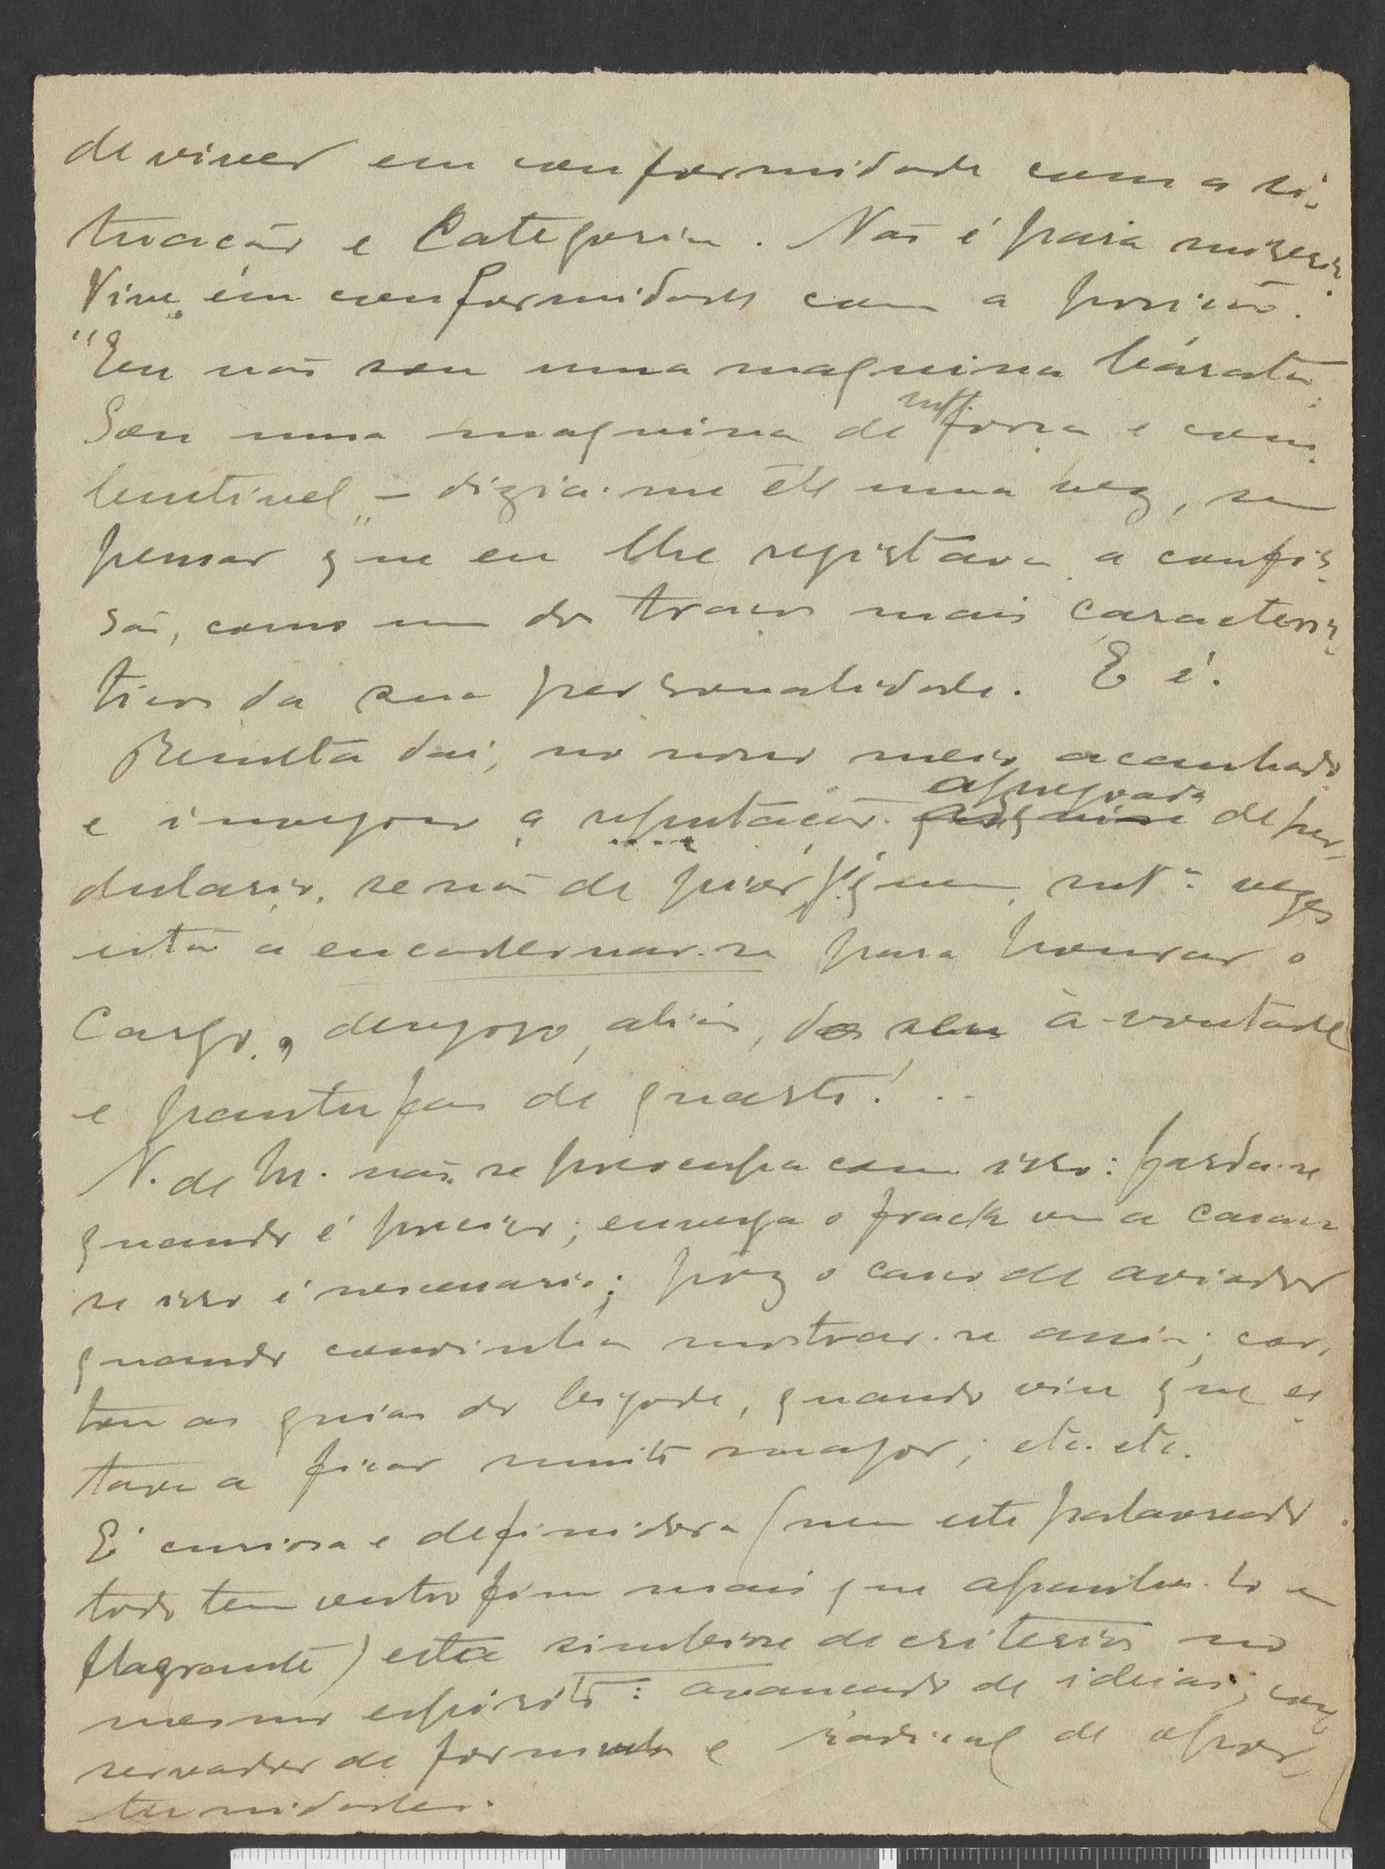 de viver em conformidade com a si-
tuação e Categoria. Não é para miseria.
Vive em conformidade com a posição.
"Eu não sou uma maquina barata.
Sou uma maquina de mtª força e com-
bustivel" – dizia-me êle uma vez, sem
pensar que eu lhe registava a confis-
são, como um dos traços mais caracteris-
ticos da sua personalidade. E é.
Resulta daí, no nosso meio acanhado
e invejoso a reputação apregoada de per-
dulario, senão de peor, p.ª quem mtªs vezes
está a encadernar-se para honrar o
Cargo, desejoso, aliás, do seu à-vontade
e pantufas de quarto!...
N. de M. não se preocupa com isso: farda-se
quando é preciso; enverga o frack ou a casaca
se isso é necessario; poz o casco de aviador
quando convinha mostrar-se assim; cor-
tou as guias do bigode, quando viu que es-
tava a ficar muito major; etc. etc.
É curiosa e definidora (nem este palavreado
todo tem outro fim mais que apanha-lo em
flagrante) esta simbiose de criterios no
mesmo espirito: avançado de ideias; con-
servador de formula e radical de opor-
tunidades.